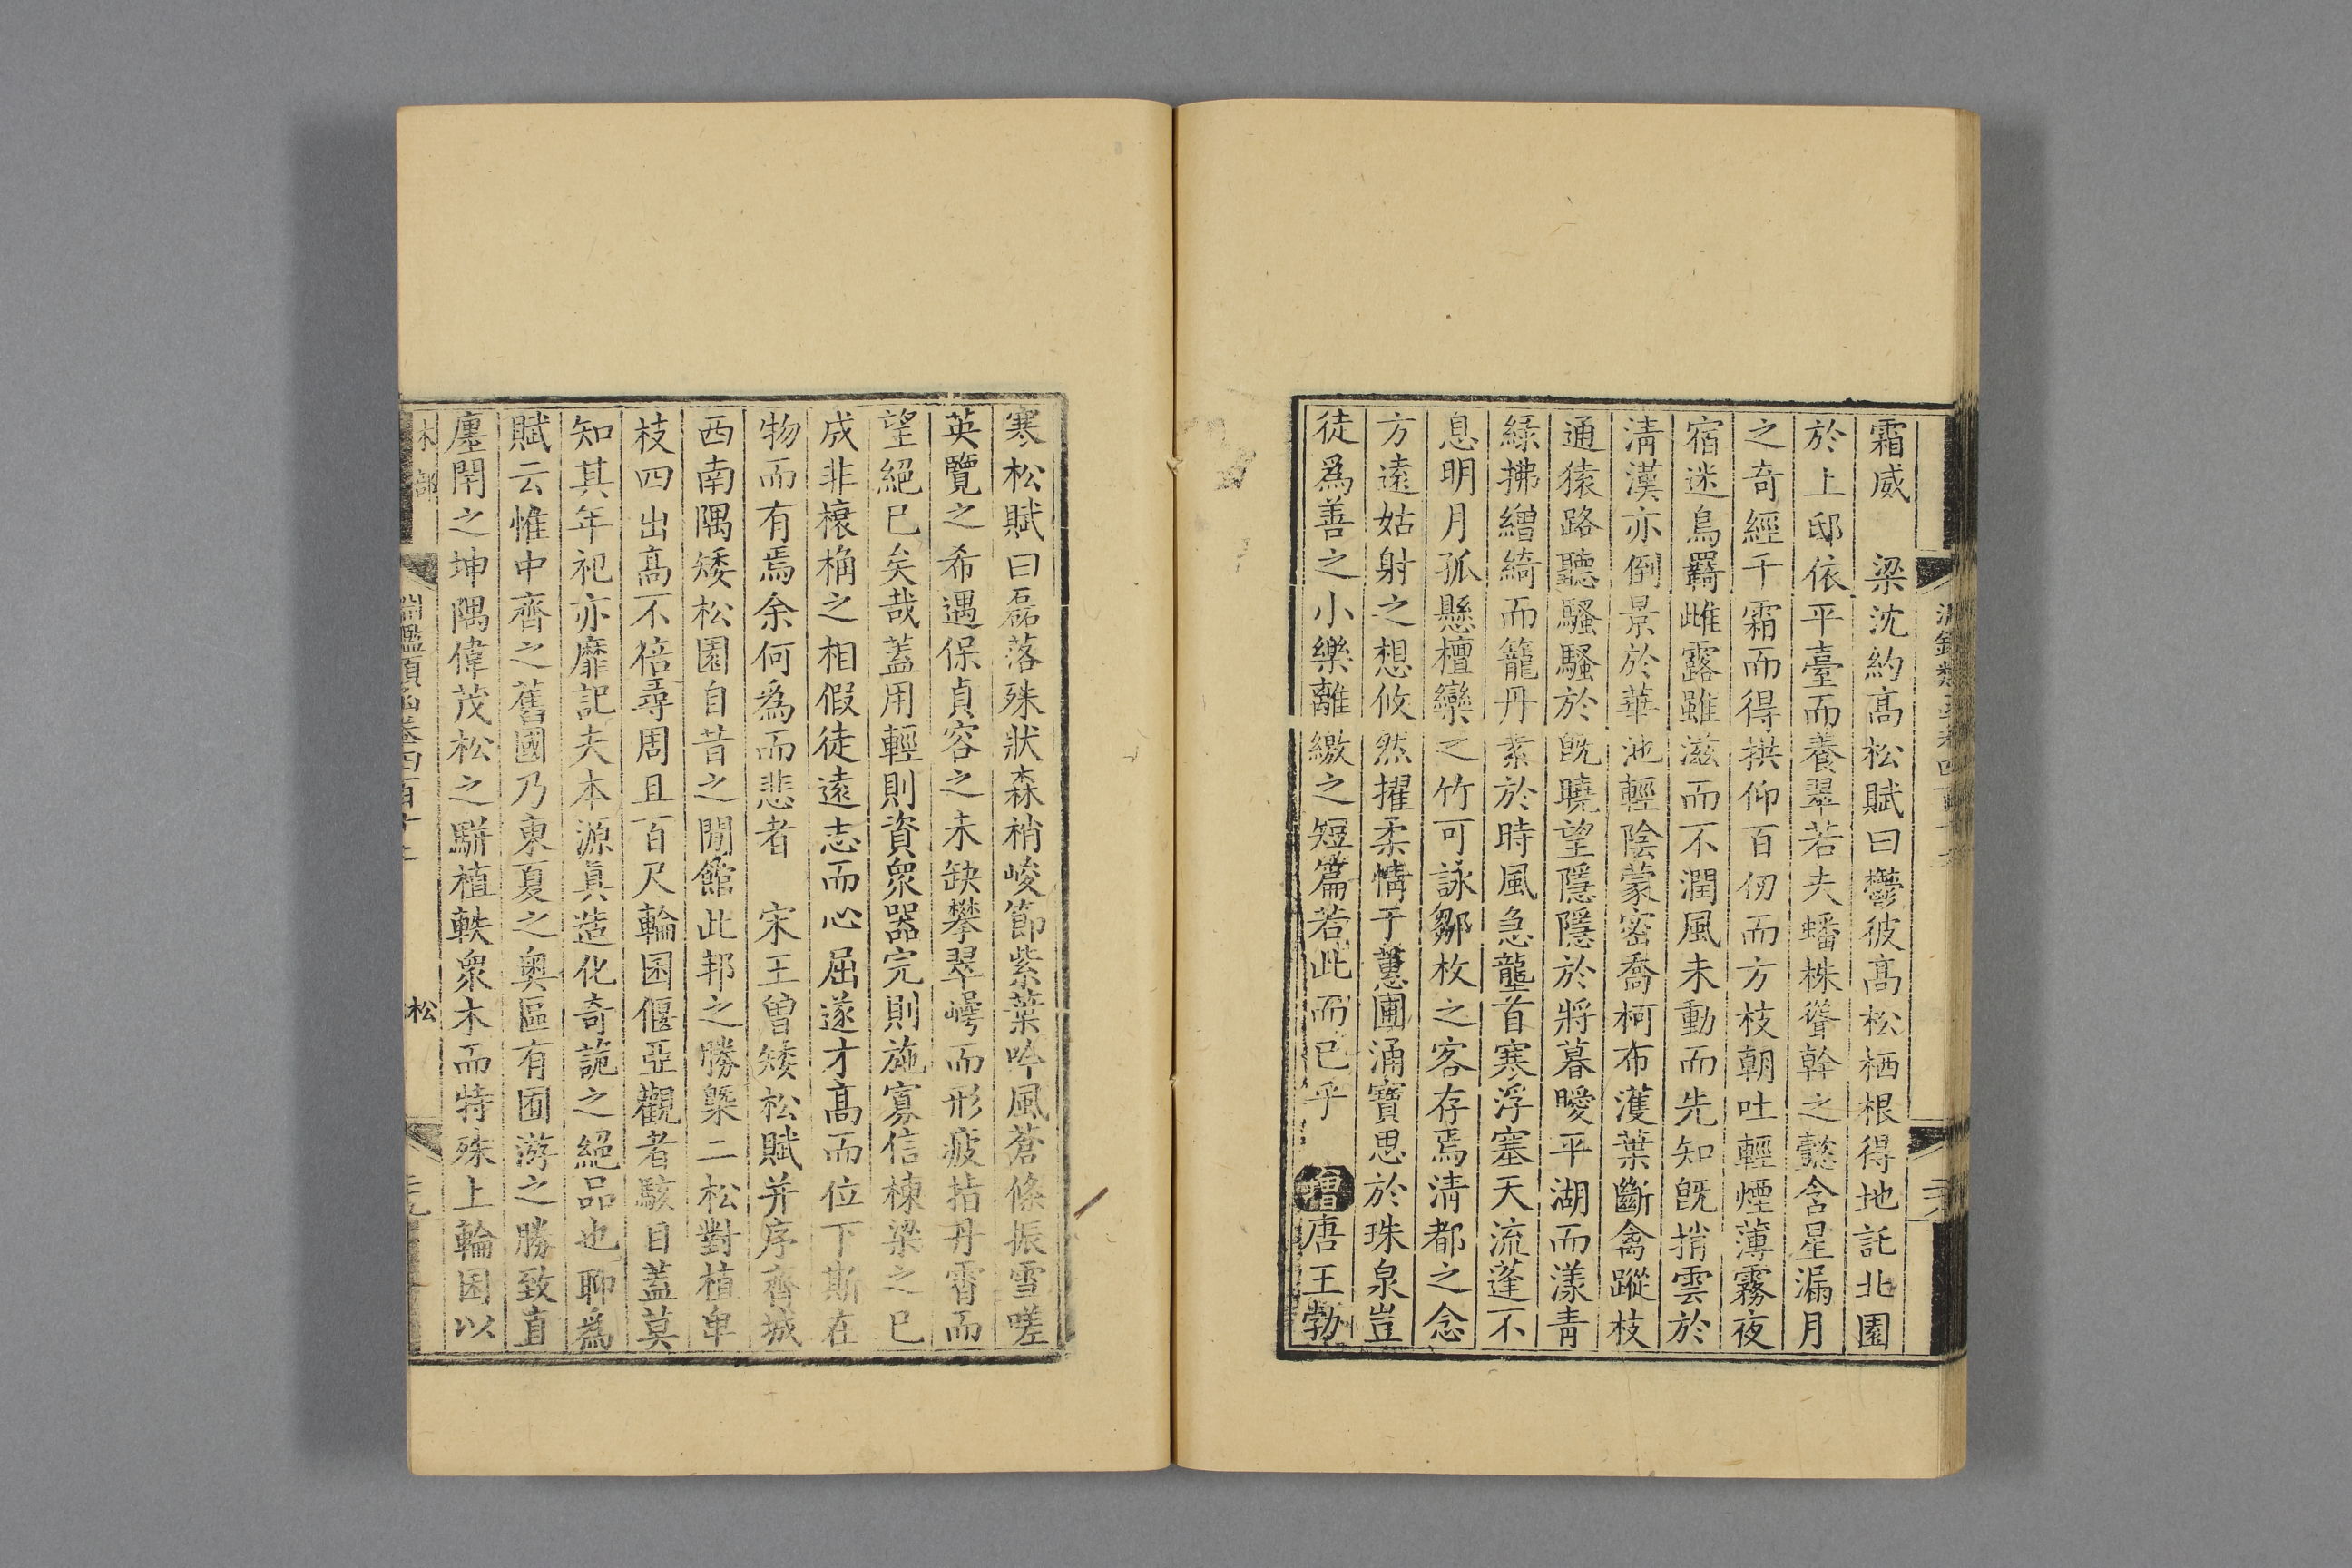 霜威　梁沈約高松賦曰鬱彼高松栖根得地託北園
於上邸依平臺而養翠若夫蟠株聳幹之懿含星漏月
之奇經千霜而得拱仰百仞而方枝朝吐輕煙薄霧夜
宿迷鳥羇雌露雖滋而不潤風未動而先知既捎雲於
清漢亦倒景於華池輕陰蒙密喬柯布濩葉斷禽蹤枝
通猿路聽騷騷於既曉望隱隱於將暮曖平湖而漾青
綠拂繒綺而籠丹素於時風急壟首寒浮塞天流蓬不
息明月孤懸檀欒之竹可詠鄒枚之客存焉清都之念
方遠姑射之想攸然擢柔情于蕙圃涌寶思於珠泉豈
徒爲善之小樂離繳之短篇若此而已乎　增唐王勃
寒松賦曰磊落殊狀森梢峻節紫葉吟風蒼條振雪嗟
英覽之希遇保貞容之未缺攀翠崿而形疲指丹霄而
望絕已矣哉蓋用輕則資衆器完則施寡信棟梁之已
成非榱桷之相假徒遠志而心屈遂才高而位下斯在
物而有焉余何爲而悲者　宋王曾矮松賦并序齊城
西南隅矮松園自昔之閒館此邦之勝槩二松對植卑
枝四出高不倍尋周且百尺輪囷偃亞觀者駭目蓋莫
知其年祀亦靡記夫本源眞造化奇詭之絕品也聊爲
賦云惟中齊之舊國乃東夏之奧區有囿游之勝致直
廛閈之坤隅偉茂松之駢植軼衆木而特殊上輪囷以
木部
淵鑑類函卷四百十二
松